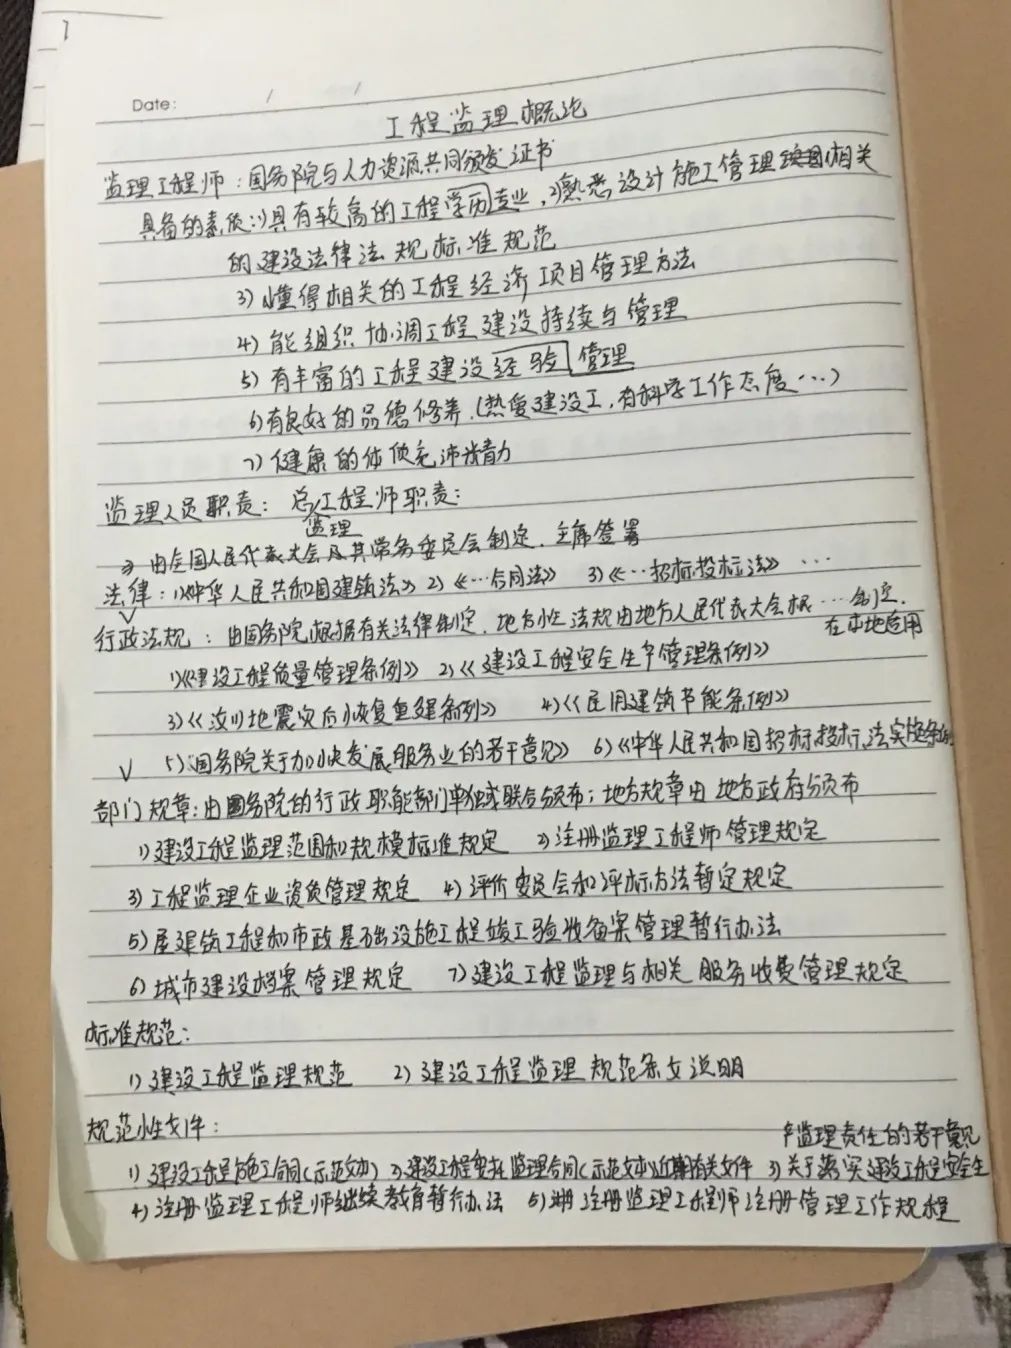 Date: / /
工程监理概论
监理工程师：国务院与人力资源共同颁发证书
具备的素质：1)具有较高的工程学历专业，2)熟悉设计施工管理相关
的建设法律法规标准规范
3)懂得相关的工程经济项目管理方法
4)能组织协调工程建设持续与管理
5)有丰富的工程建设经验管理
6)有良好的品德修养.(热爱建设工,有科学工作态度…)
7)健康的体质充沛精力
监理人员职责：总工程师职责：
监理
由全国人民代表大会及其常务委员会制定.主席签署
法律：1)《中华人民共和国建筑法》 2)《…合同法》 3)《…招标投标法》 …
行政法规：由国务院根据有关法律制定.地方性法规由地方人民代表大会根…制定.
在本地适用
1)《建设工程质量管理条例》 2)《建设工程安全生产管理条例》
3)《汶川地震灾后恢复重建条例》 4)《民用建筑节能条例》
5)《国务院关于加快发展服务业的若干意见》 6)《中华人民共和国招标投标法实施条例
部门规章：由国务院的行政职能部门单独或联合颁布；地方规章由地方政府颁布
1)建设工程监理范围和规模标准规定 2)注册监理工程师管理规定
3)工程监理企业资质管理规定 4)评价委员会和评标方法暂定规定
5)屋建筑工程和市政基础设施工程竣工验收备案管理暂行办法
6)城市建设档案管理规定 7)建设工程监理与相关服务收费管理规定
标准规范：
1)建设工程监理规范 2)建设工程监理规范条文说明
规范性文件：
产监理责任的若干意见
1)建设工程施工合同(示范文本) 2)建设工程委托监理合同(示范文本)有关文件 3)关于落实建设工程安全生
4)注册监理工程师继续教育暂行办法 5)注册监理工程师注册管理工作规程